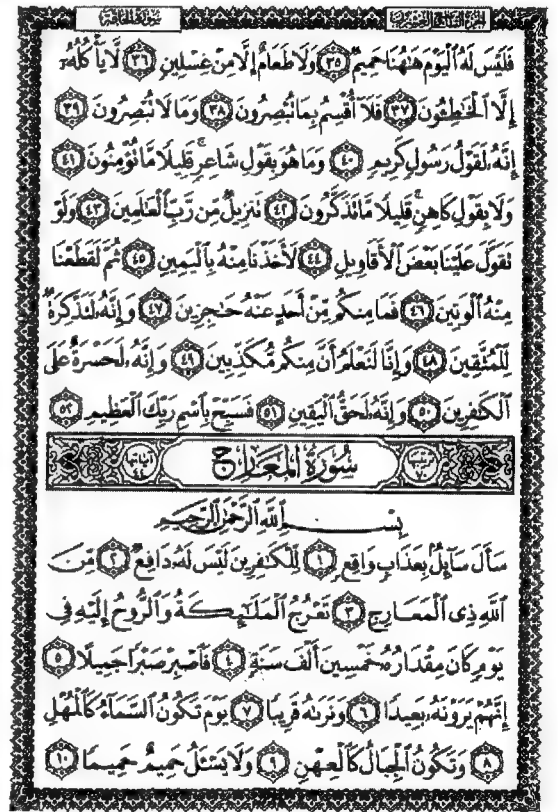 الجزء التاسع والعشرون
سورة الحاقة
فَلَيْسَ لَهُ ٱلْيَوْمَ هَٰهُنَا حَمِيمٌ ٣٥ وَلَا طَعَامٌ إِلَّا مِنْ غِسْلِينٍ ٣٦ لَّا يَأْكُلُهُۥٓ
إِلَّا ٱلْخَٰطِـُٔونَ ٣٧ فَلَآ أُقْسِمُ بِمَا تُبْصِرُونَ ٣٨ وَمَا لَا تُبْصِرُونَ ٣٩
إِنَّهُۥ لَقَوْلُ رَسُولٍ كَرِيمٍ ٤٠ وَمَا هُوَ بِقَوْلِ شَاعِرٍ ۚ قَلِيلًا مَّا تُؤْمِنُونَ ٤١
وَلَا بِقَوْلِ كَاهِنٍ ۚ قَلِيلًا مَّا تَذَكَّرُونَ ٤٢ تَنزِيلٌ مِّن رَّبِّ ٱلْعَٰلَمِينَ ٤٣ وَلَوْ
تَقَوَّلَ عَلَيْنَا بَعْضَ ٱلْأَقَاوِيلِ ٤٤ لَأَخَذْنَا مِنْهُ بِٱلْيَمِينِ ٤٥ ثُمَّ لَقَطَعْنَا
مِنْهُ ٱلْوَتِينَ ٤٦ فَمَا مِنكُم مِّنْ أَحَدٍ عَنْهُ حَٰجِزِينَ ٤٧ وَإِنَّهُۥ لَتَذْكِرَةٌ
لِّلْمُتَّقِينَ ٤٨ وَإِنَّا لَنَعْلَمُ أَنَّ مِنكُم مُّكَذِّبِينَ ٤٩ وَإِنَّهُۥ لَحَسْرَةٌ عَلَى
ٱلْكَٰفِرِينَ ٥٠ وَإِنَّهُۥ لَحَقُّ ٱلْيَقِينِ ٥١ فَسَبِّحْ بِٱسْمِ رَبِّكَ ٱلْعَظِيمِ ٥٢
ترتيبها ٧٠ سُورَةُ المَعَارِج آياتها ٤٤
بِسْمِ ٱللَّهِ ٱلرَّحْمَٰنِ ٱلرَّحِيمِ
سَأَلَ سَآئِلٌۢ بِعَذَابٍ وَاقِعٍ ١ لِّلْكَٰفِرِينَ لَيْسَ لَهُۥ دَافِعٌ ٢ مِّنَ
ٱللَّهِ ذِى ٱلْمَعَارِجِ ٣ تَعْرُجُ ٱلْمَلَٰٓئِكَةُ وَٱلرُّوحُ إِلَيْهِ فِى
يَوْمٍ كَانَ مِقْدَارُهُۥ خَمْسِينَ أَلْفَ سَنَةٍ ٤ فَٱصْبِرْ صَبْرًا جَمِيلًا ٥
إِنَّهُمْ يَرَوْنَهُۥ بَعِيدًا ٦ وَنَرَىٰهُ قَرِيبًا ٧ يَوْمَ تَكُونُ ٱلسَّمَآءُ كَٱلْمُهْلِ
٨ وَتَكُونُ ٱلْجِبَالُ كَٱلْعِهْنِ ٩ وَلَا يَسْـَٔلُ حَمِيمٌ حَمِيمًا ١٠